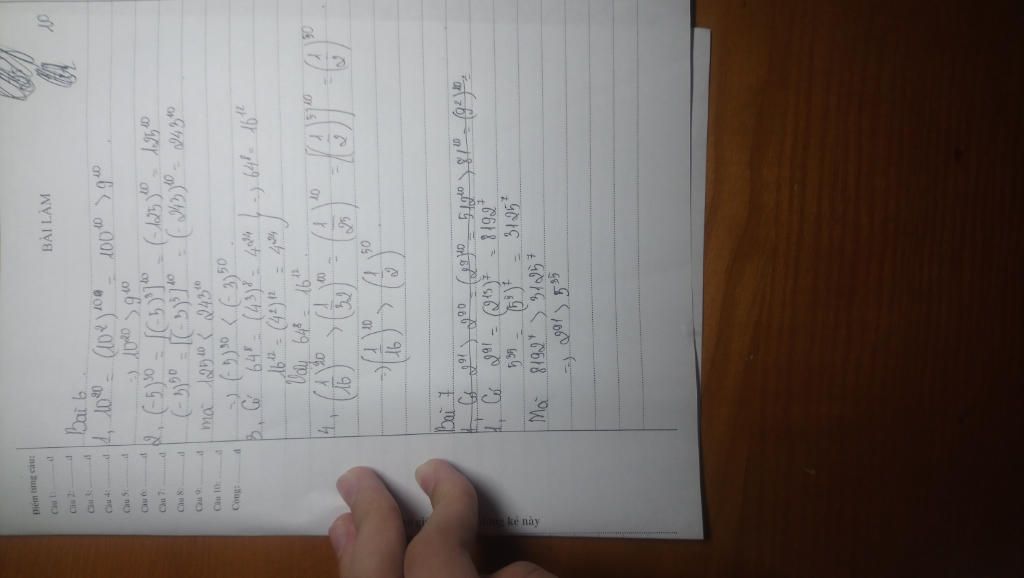 BÀI LÀM
10
Điểm từng câu:
Câu 1:..........đ
Câu 2:..........đ
Câu 3:..........đ
Câu 4:..........đ
Câu 5:..........đ
Câu 6:..........đ
Câu 7:..........đ
Câu 8:..........đ
Câu 9:..........đ
Câu 10:..........đ
Cộng:..........đ
Bài 6
1, 10²⁰ = (10²)¹⁰ = 100¹⁰ > 9¹⁰
=> 10²⁰ > 9¹⁰
2, (-5)³⁰ = [(-5)³]¹⁰ = (-125)¹⁰ = 125¹⁰
(-3)⁵⁰ = [(-3)⁵]¹⁰ = (-243)¹⁰ = 243¹⁰
mà 125¹⁰ < 243¹⁰
=> (-5)³⁰ < (-3)⁵⁰
3, Có 64⁸ = (4³)⁸ = 4²⁴ } => 64⁸ = 16¹²
16¹² = (4²)¹² = 4²⁴
Vậy 64⁸ = 16¹²
4, (1/16)¹⁰ > (1/32)¹⁰ = (1/2⁵)¹⁰ = [(1/2)⁵]¹⁰ = (1/2)⁵⁰
=> (1/16)¹⁰ > (1/2)⁵⁰
Bài 7
1, Có 2⁹¹ > 2⁹⁰ = (2⁹)¹⁰ = 512¹⁰ > 81¹⁰ = (9²)¹⁰ =
1, Có 2⁹¹ = (2¹³)⁷ = 8192⁷
5³⁵ = (5⁵)⁷ = 3125⁷
Mà 8192⁷ > 3125⁷
=> 2⁹¹ > 5³⁵
kẻ này